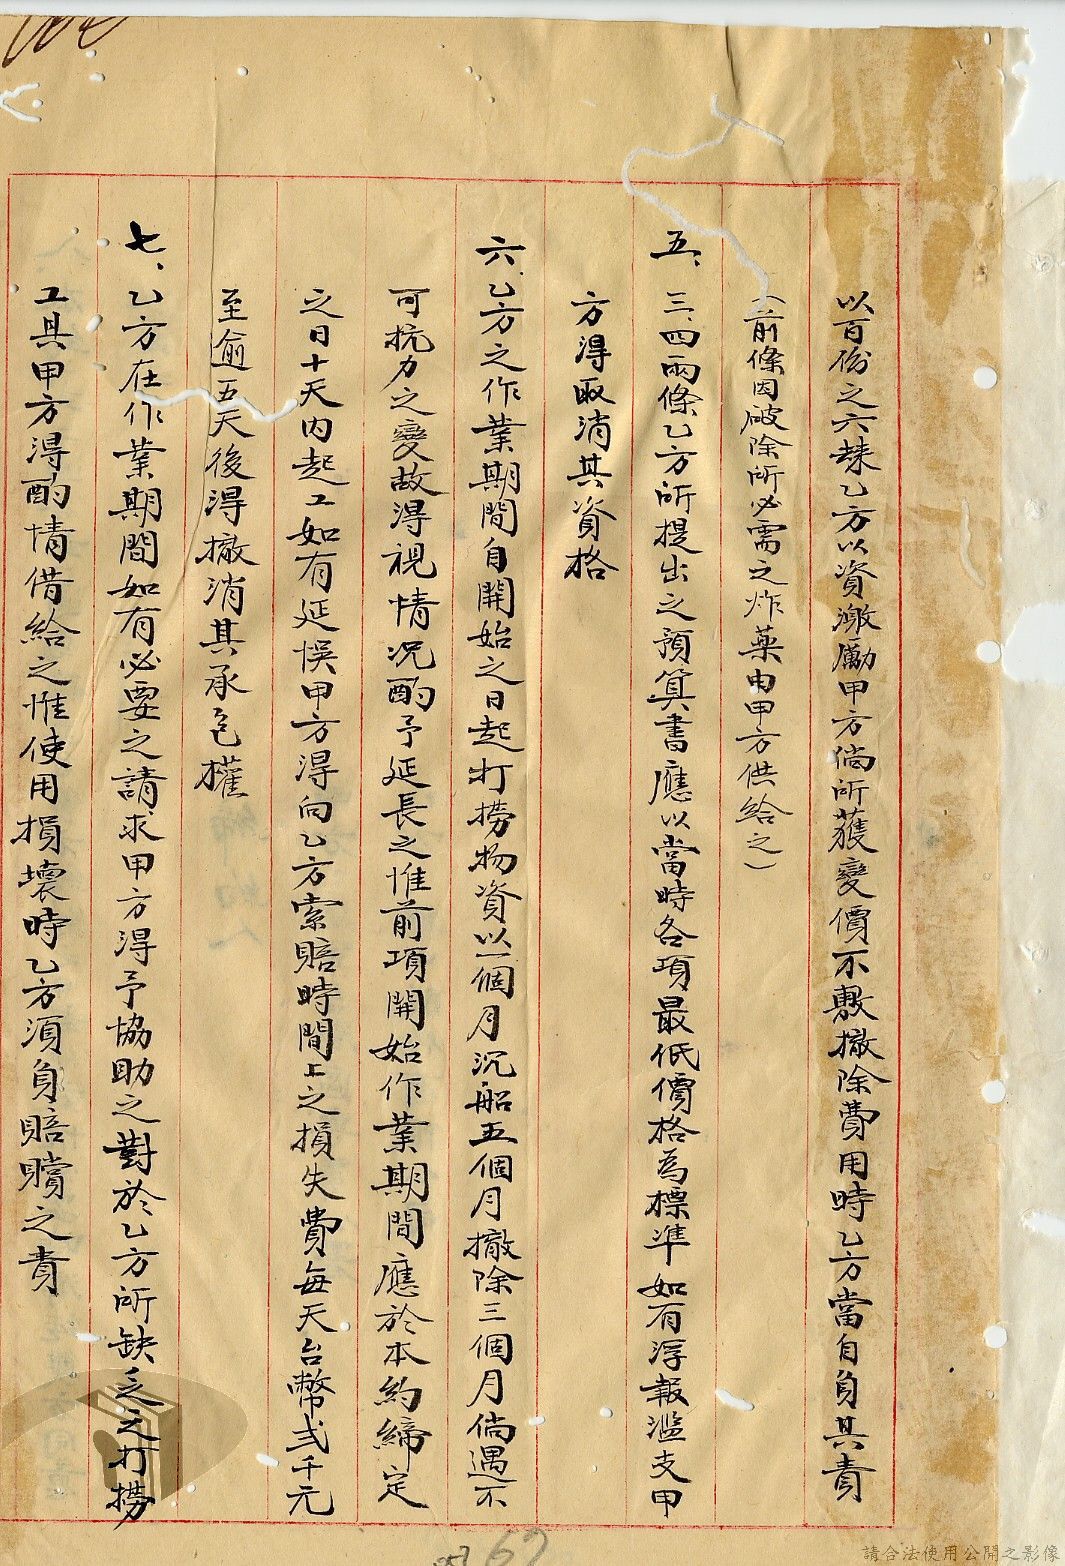 以百份之六歸乙方以資激勵甲方倘所獲變價不敷撤除費用時乙方當自負其責
（前條因破除所必需之炸藥由甲方供給之）
五、三、四兩條乙方所提出之預算書應以當時各項最低價格為標準如有浮報濫支甲
方得取消其資格
六、乙方之作業期間自開始之日起打撈物資以一個月沉船五個月撤除三個月倘遇不
可抗力之變故得視情況酌予延長之惟前項開始作業期間應於本約締定
之日十天內起工如有延悞甲方得向乙方索賠時間上之損失費每天台幣弍千元
至逾五天後得撤消其承包權
七、乙方在作業期間如有必要之請求甲方得予協助之對於乙方所缺乏之打撈
工具甲方得酌情借給之惟使用損壞時乙方須負賠贖之責
67
請合法使用公開之影像